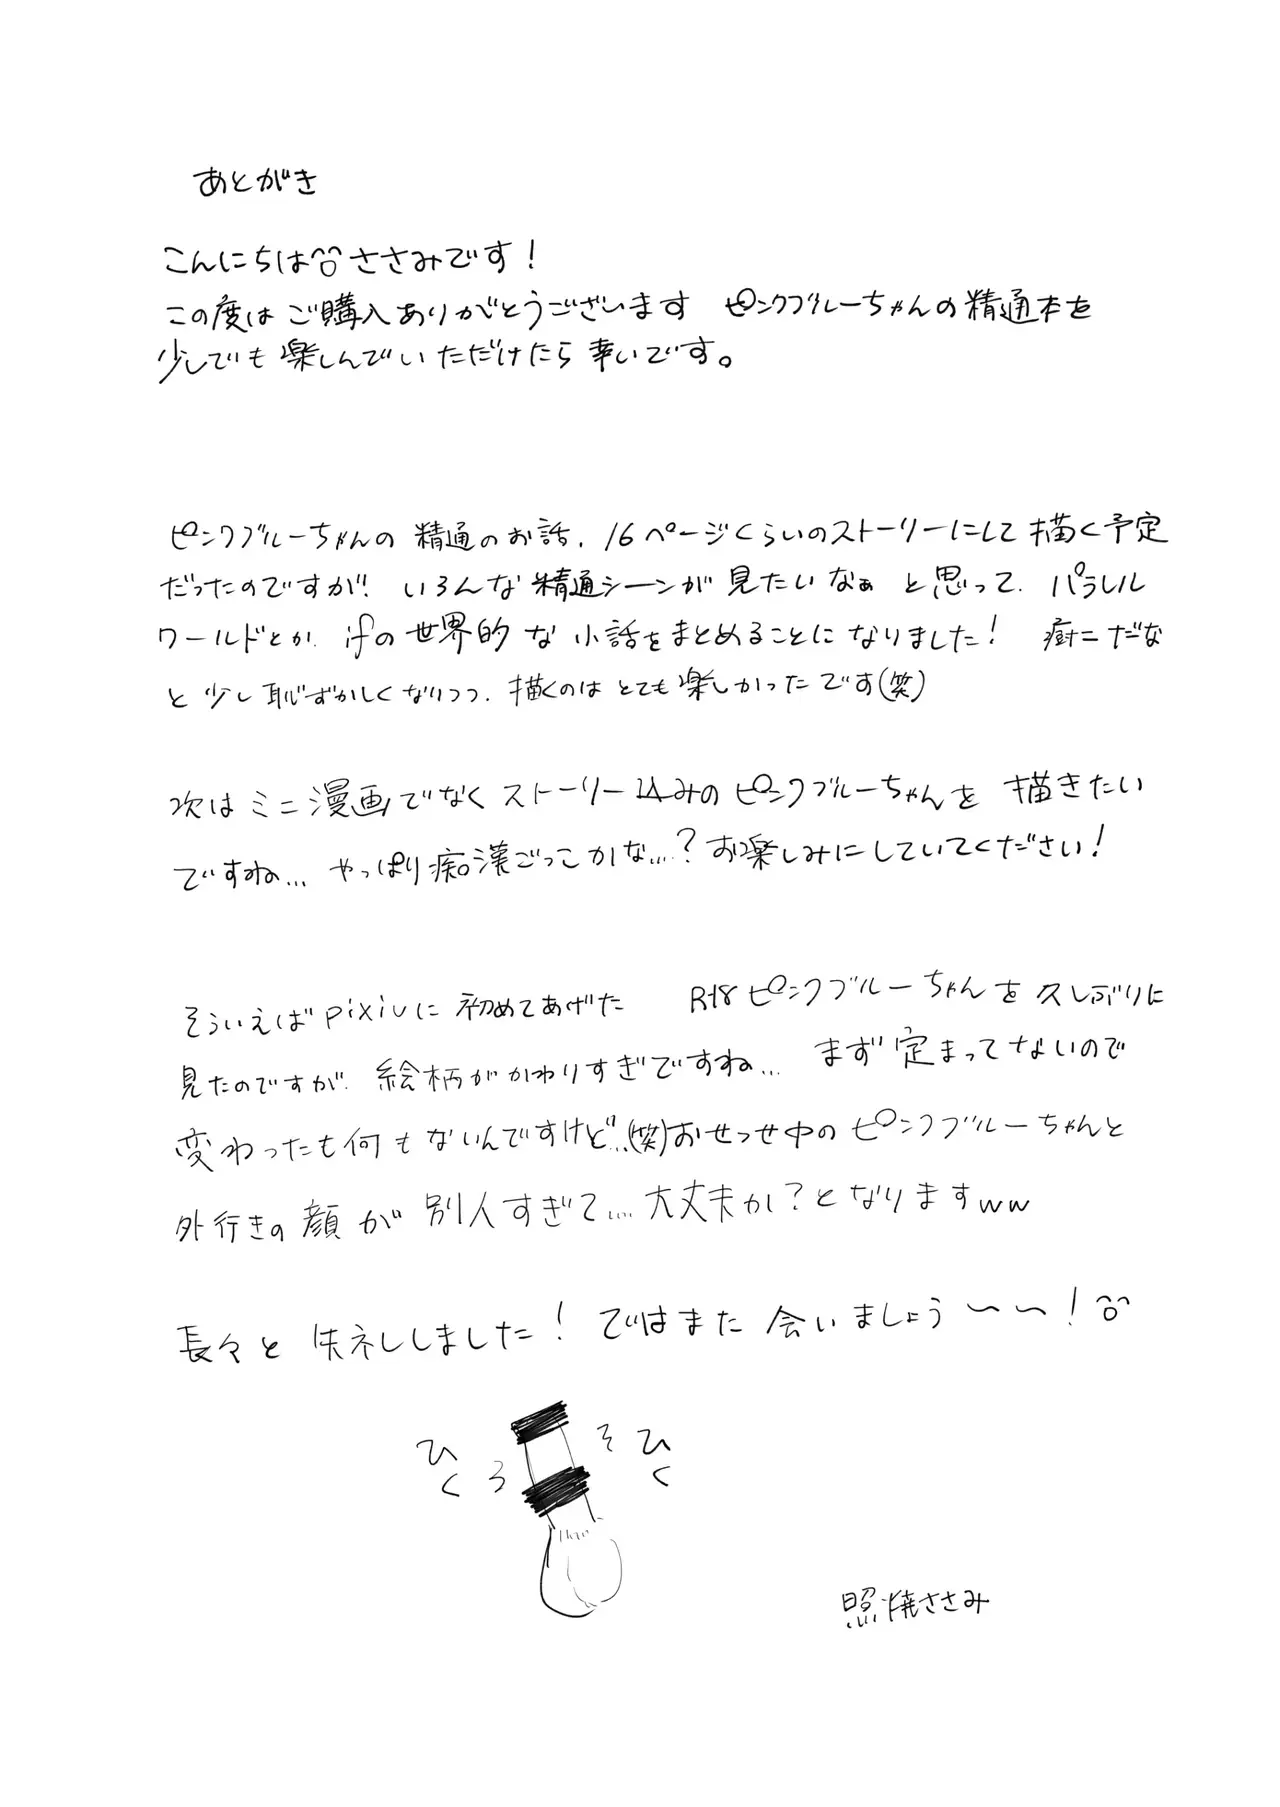 あとがき
こんにちは ささみです!
この度はご購入ありがとうございます ピンクブルーちゃんの精通本を
少しでも楽しんでいただけたら幸いです。
ピンクブルーちゃんの精通のお話、16ページくらいのストーリーにして描く予定
だったのですが、いろんな精通シーンが見たいなぁと思って、パラレル
ワールドとか、ifの世界的な小話をまとめることになりました! 厨二だな
と少し恥ずかしくなりつつ、描くのはとても楽しかったです(笑)
次はミニ漫画でなくストーリー込みのピンクブルーちゃんを描きたい
ですね… やっぱり痴漢ごっこかな…? お楽しみにしていてください!
そういえばpixivに初めてあげた R18ピンクブルーちゃんを久しぶりに
見たのですが、絵柄がかわりすぎですね… まず定まってないので
変わったも何もないんですけど…(笑)おせっせ中のピンクブルーちゃんと
外行きの顔が別人すぎて… 大丈夫か?となりますww
長々と失礼しました! ではまた会いましょう〜〜!
ひく
ろ
そ
ひく
照焼ささみ